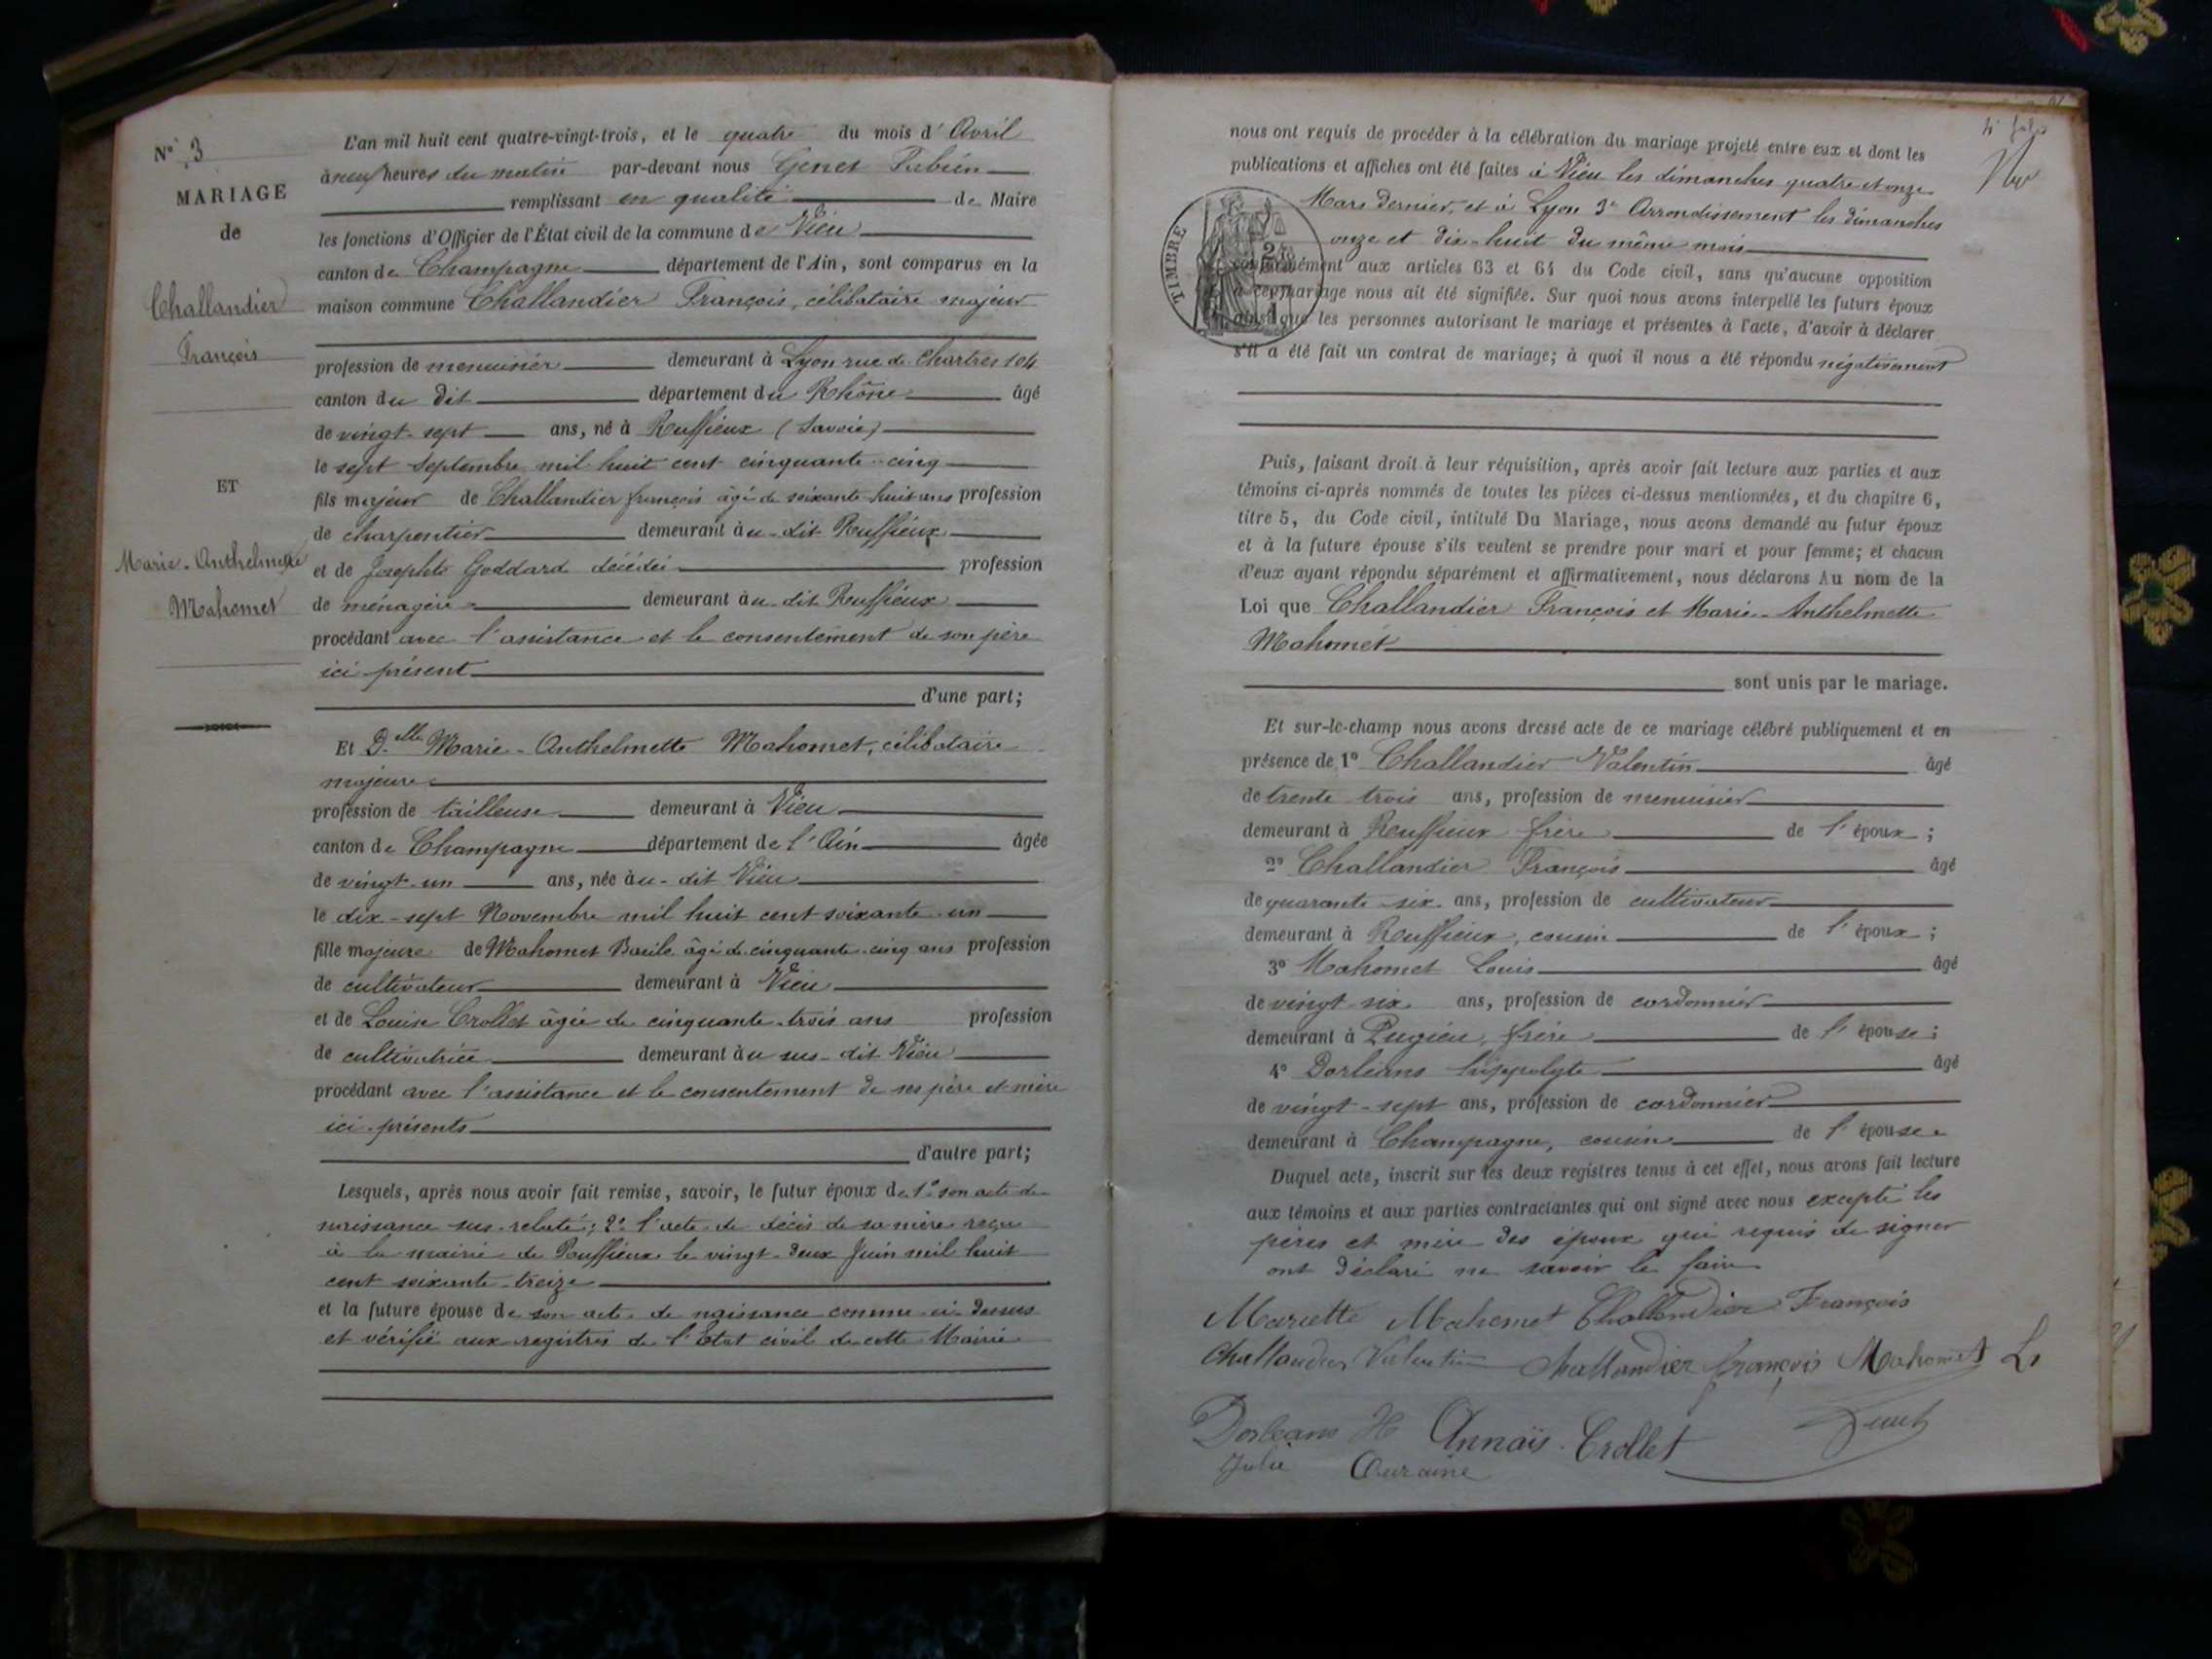 N° 3
MARIAGE
de
Challandier
François
ET
Marie-Anthelmette
Mahomet
L'an mil huit cent quatre-vingt-trois, et le quatre du mois d'Avril
à neuf heures du matin par-devant nous Genet Fabien
remplissant en qualité de Maire
les fonctions d'Officier de l'État civil de la commune de Vieu
canton de Champagne département de l'Ain, sont comparus en la
maison commune Challandier François, célibataire majeur
profession de menuisier demeurant à Lyon rue de Chartres 104
canton du dit département du Rhône âgé
de vingt-sept ans, né à Ruffieux (Savoie)
le sept Septembre mil huit cent cinquante-cinq
fils majeur de Challandier françois âgé de soixante-huit ans profession
de charpentier demeurant àu-dit Ruffieux
et de Josephte Goddard décédée profession
de ménagère demeurant àu-dit Ruffieux
procédant avec l'assistance et le consentement de son père
ici présent
d'une part;
Et Delle Marie-Anthelmette Mahomet, célibataire
majeure
profession de tailleuse demeurant à Vieu
canton de Champagne département de l'Ain âgée
de vingt-un ans, née àu-dit Vieu
le dix-sept Novembre mil huit cent soixante-un
fille majeure de Mahomet Basile âgé de cinquante-cinq ans profession
de cultivateur demeurant à Vieu
et de Louise Crollet âgée de cinquante-trois ans profession
de cultivatrice demeurant àu sus-dit Vieu
procédant avec l'assistance et le consentement de ses père et mère
ici présents
d'autre part;
Lesquels, après nous avoir fait remise, savoir, le futur époux de 1° son acte de
naissance sus-relaté; 2° l'acte de décès de sa mère reçu
à la mairie de Ruffieux le vingt-deux Juin mil huit
cent soixante-treize
et la future épouse de son acte de naissance comme ci-dessus
et vérifié aux registres de l'Etat civil de cette Mairie
nous ont requis de procéder à la célébration du mariage projeté entre eux et dont les
publications et affiches ont été faites à Vieu les dimanches quatre et onze
Mars dernier, et à Lyon 3e Arrondissement les dimanches
onze et dix-huit du même mois
TIMBRE
conformément aux articles 63 et 64 du Code civil, sans qu'aucune opposition
à ce mariage nous ait été signifiée. Sur quoi nous avons interpellé les futurs époux
ainsi que les personnes autorisant le mariage et présentes à l'acte, d'avoir à déclarer
s'il a été fait un contrat de mariage; à quoi il nous a été répondu négativement
Puis, faisant droit à leur réquisition, après avoir fait lecture aux parties et aux
témoins ci-après nommés de toutes les pièces ci-dessus mentionnées, et du chapitre 6,
titre 5, du Code civil, intitulé Du Mariage, nous avons demandé au futur époux
et à la future épouse s'ils veulent se prendre pour mari et pour femme; et chacun
d'eux ayant répondu séparément et affirmativement, nous déclarons Au nom de la
Loi que Challandier François et Marie-Anthelmette
Mahomet
sont unis par le mariage.
Et sur-le-champ nous avons dressé acte de ce mariage célébré publiquement et en
présence de 1° Challandier Valentin âgé
de trente trois ans, profession de menuisier
demeurant à Ruffieux frère de l'époux;
2° Challandier François âgé
de quarante-six ans, profession de cultivateur
demeurant à Ruffieux, cousin de l'époux;
3° Mahomet Louis âgé
de vingt-six ans, profession de cordonnier
demeurant à Pugieu, frère de l'épouse;
4° Dorleans hippolyte âgé
de vingt-sept ans, profession de cordonnier
demeurant à Champagne, cousin de l'épouse
Duquel acte, inscrit sur les deux registres tenus à cet effet, nous avons fait lecture
aux témoins et aux parties contractantes qui ont signé avec nous excepté les
pères et mère des époux qui requis de signer
ont déclaré ne savoir le faire
Mariette Mahomet Challandier François
Challandier Valentin Challandier françois Mahomet L
Dorleans H Annaïs Crollet Genet
Julie